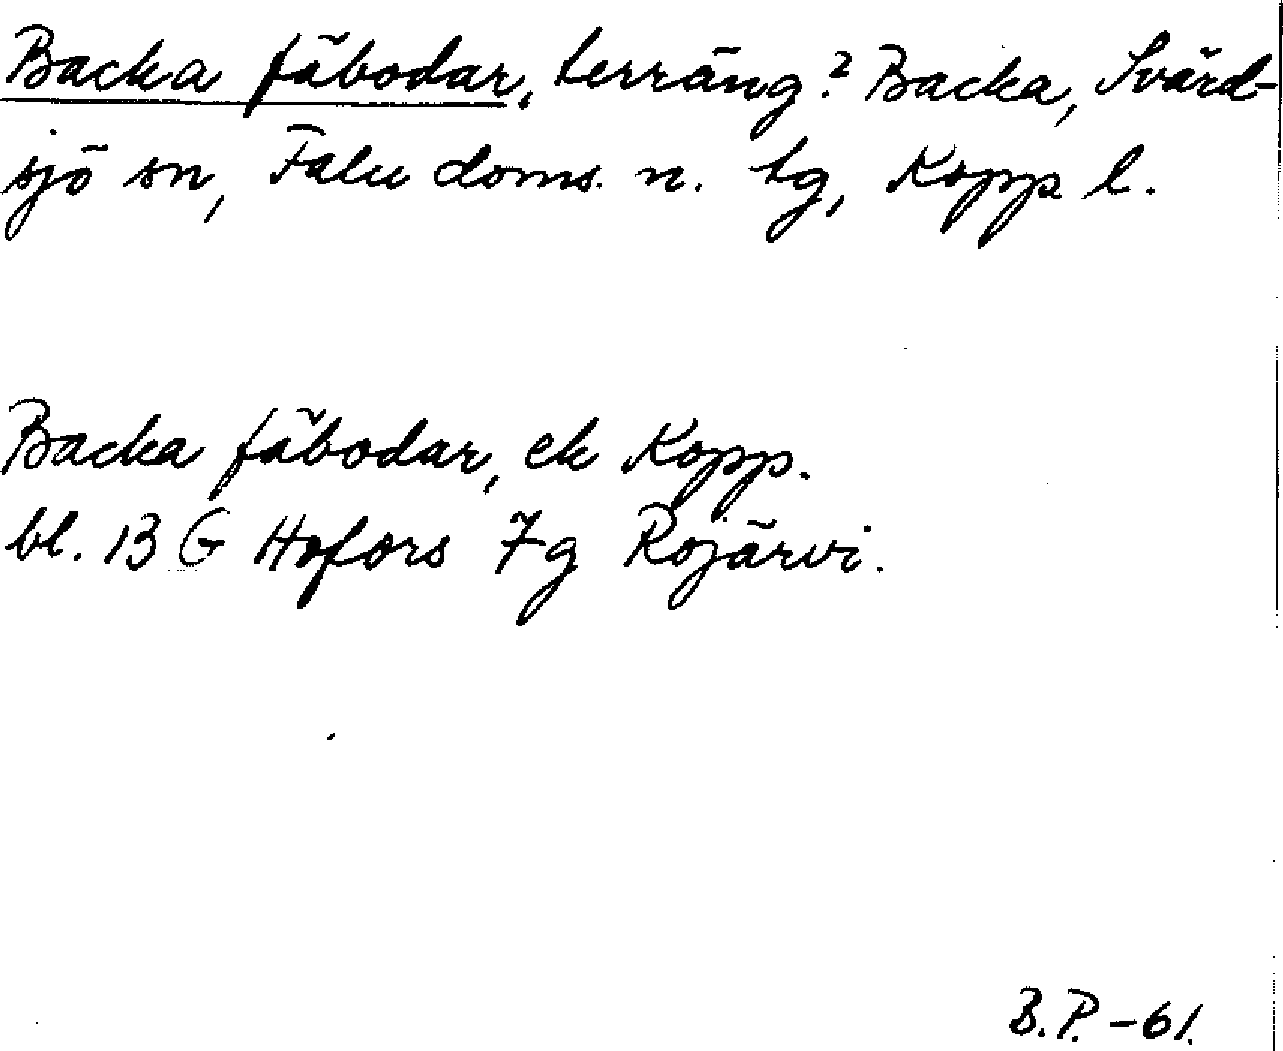 Backa fäbodar, terräng? Backa, Svärd-
sjö sn, Falu doms. n. tg, Kopp l.
Backa fäbodar, ek Kopp.
bl. 13 G Hofors 7g Rojärvi.
B.P. -61.